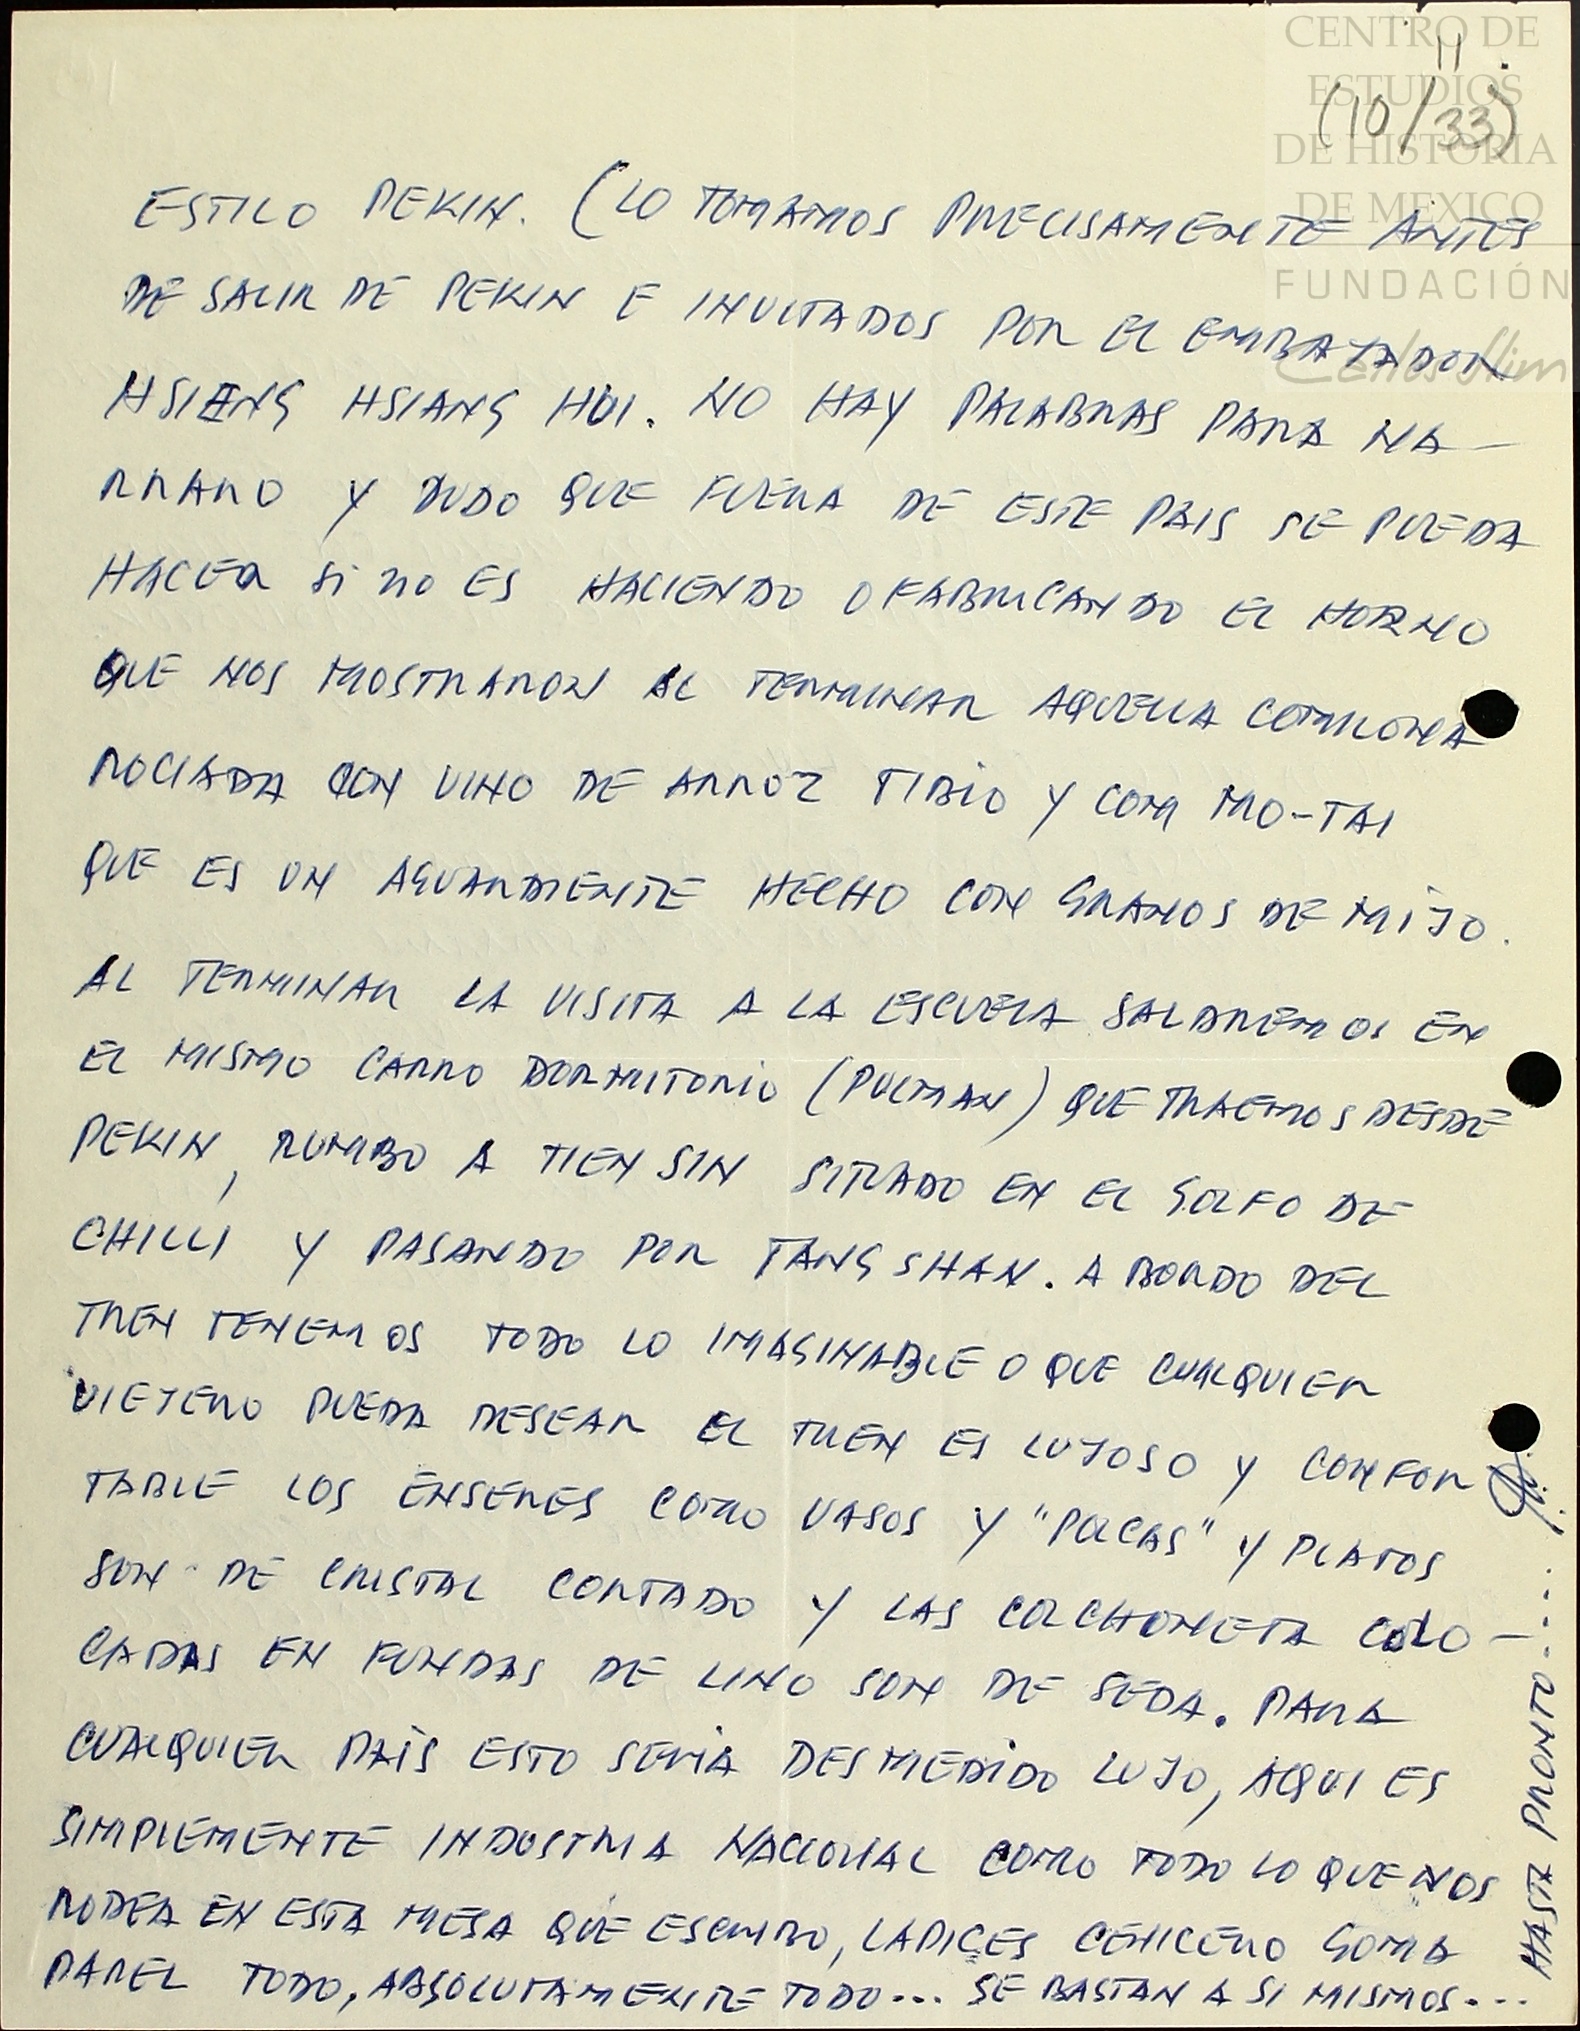 CENTRO DE
ESTUDIOS
DE HISTORIA
DE MEXICO
FUNDACIÓN
Carlos Slim
11.
(10/33)
ESTILO PEKIN. (LO TOMAMOS PRECISAMENTE ANTES
DE SALIR DE PEKIN E INVITADOS POR EL EMBAJADOR
HSIENG HSIANG HUI. NO HAY PALABRAS PARA NA-
RRARO Y DUDO QUE FUERA DE ESTE PAIS SE PUEDA
HACER SI NO ES HACIENDO O FABRICANDO EL HORNO
QUE NOS MOSTRARON AL TERMINAR AQUELLA COMILONA
ROCIADA CON VINO DE ARROZ TIBIO Y COM MO-TAI
QUE ES UN AGUARDIENTE HECHO CON GRANOS DE MIJO.
AL TERMINAR LA VISITA A LA ESCUELA SALDREMOS EN
EL MISMO CARRO DORMITORIO (PULMAN) QUE TRAEMOS DESDE
PEKIN, RUMBO A TIEN SIN SITUADO EN EL GOLFO DE
CHILLI Y PASANDO POR TANG SHAN. A BORDO DEL
TREN TENEMOS TODO LO IMAGINABLE O QUE CUALQUIER
VIEJERO PUEDA DESEAR EL TREN ES LUJOSO Y CONFOR
TABLE LOS ENSERES COMO VASOS Y "POLCAS" Y PLATOS
SON DE CRISTAL CORTADO Y LAS COLCHONETA COLO-
CADAS EN FUNDAS DE LINO SON DE SEDA. PARA
CUALQUIER PAÍS ESTO SERIA DESMEDIDO LUJO, AQUI ES
SIMPLEMENTE INDUSTRIA NACIONAL COMO TODO LO QUE NOS
RODEA EN ESTA MESA QUE ESCRIBO, LAPICES CENICERO GOMA
PAPEL TODO, ABSOLUTAMENTE TODO... SE BASTAN A SI MISMOS...
HASTA PRONTO....